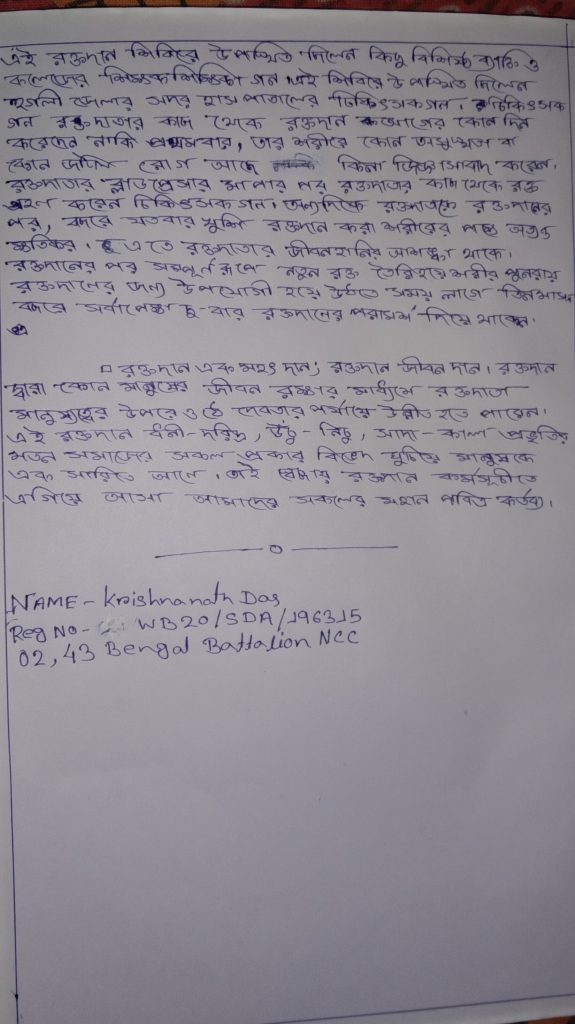 এই রক্তদান শিবিরে উপস্থিত ছিলেন কিছু বিশিষ্ট ব্যাক্তি ও
কলেজের শিক্ষক শিক্ষিকা গন এই শিবিরে উপস্থিত ছিলেন
হুগলী জেলার সদর হাসপাতালের চিকিৎসকগন। চিকিৎসক
গন রক্তদাতার কাছ থেকে রক্তদান আগের কোন দিন
করেছেন নাকি প্রথমবার, তার শরীরে কোন অসুস্থতা বা
কোন জটিল রোগ আছে কিনা জিজ্ঞাসাবাদ করেন।
রক্তদাতার ব্লাডপ্রেসার মাপার পর রক্তদাতার কাছ থেকে রক্ত
গ্রহণ করেন চিকিৎসক গন। অন্যদিকে রক্তদাতাকে রক্তদানের
পর, বছরে যতবার খুশি রক্তদান করা শরীরের পক্ষে অত্যন্ত
ক্ষতিকর। এতে রক্তদাতার জীবনহানির আশঙ্কা থাকে।
রক্তদানের পর সম্পূর্ন রূপে নতুন রক্ত তৈরি হয়ে শরীর পুনরায়
রক্তদানের জন্য উপযোগী হয়ে উঠতে সময় লাগে তিনমাস
বছরে সর্বাপেক্ষা দু-বার রক্তদানের পরামর্শ দিয়ে থাকেন।
রক্তদান এক মহৎ দান; রক্তদান জীবন দান। রক্তদান
দ্বারা কোন মানুষের জীবন রক্ষার মাধ্যমে রক্তদাতা
মানুষ্যত্বের উপরে ওঠে দেবতার পর্যায়ে উন্নীত হতে পারেন।
এই রক্তদান ধনী-দরিদ্র, উঁচু-নিচু, সাদা-কালা প্রভৃতির
মতন সমাজের সকল প্রকার বিভেদ ঘুচিয়ে মানুষকে
এক সারিতে আনে। তাই স্বেচ্ছায় রক্তদান কর্মসূচীতে
এগিয়ে আসা আমাদের সকলের মহান পবিত্র কর্তব্য।
NAME - Krishnanath Das
Reg No - WB20/SDA/196315
02, 43 Bengal Battalion NCC